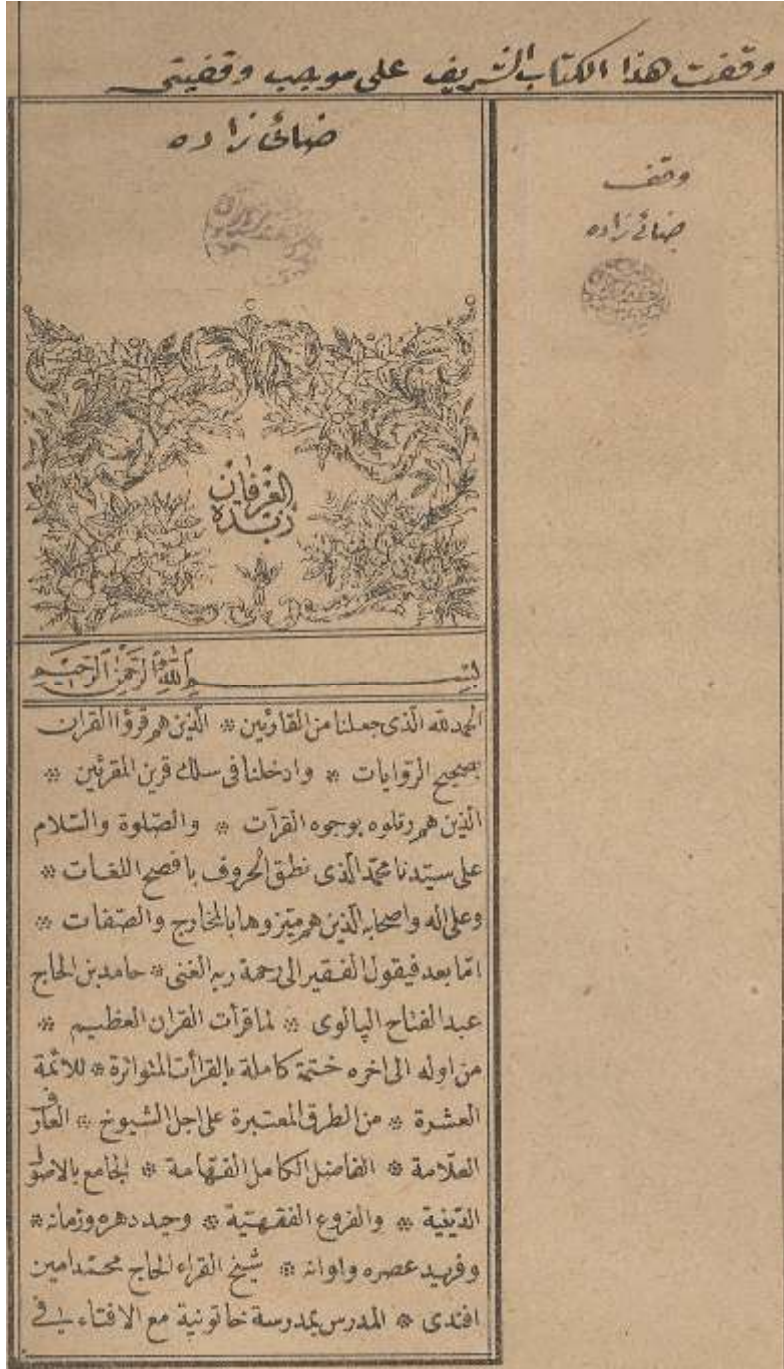 وقفت هذا الكتاب الشريف على موجب وقفيتى
ضيائى زاده
وقف
ضيائى زاده
زبدة العرفان
بسم الله الرحمن الرحيم
الحمد لله الذى جعلنا من القارئين * الذين هم قرؤا القران
بصحيح الروايات * وادخلنا فى سلك قرين المقرئين *
الذين هم رتلوه بوجوه القرآت * والصلوة والسلام
على سيدنا محمد الذى نطق الحروف بافصح اللغات *
وعلى اله واصحابه الذين هم ميزوها بالمخارج والصفات *
اما بعد فيقول الفقير الى رحمة ربه الغنى * حامد بن الحاج
عبد الفتاح الپالوى * لما قرأت القران العظيم *
من اوله الى اخره ختمة كاملة بالقرأت المتواترة * للائمة
العشرة * من الطرق المعتبرة على اجل الشيوخ * العارف
العلامة * الفاضل الكامل الفهامة * الجامع بالاصول
الدينية * والفروع الفقهية * وحيد دهره وزمانه *
وفريد عصره واوانه * شيخ القراء الحاج محمد امين
افندى * المدرس بمدرسة خاتونية مع الافتاء فى